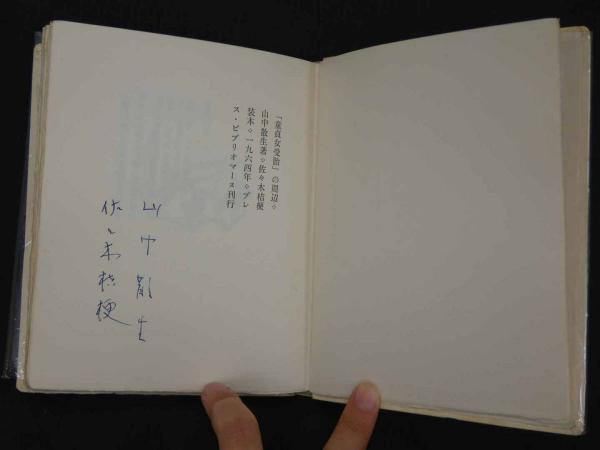 「童貞女受胎」の周辺◇
山中散生著◇佐々木桔梗
装本◇一九六四年◇プレ
ス・ビブリオマーヌ刊行
山中散生
佐々木桔梗